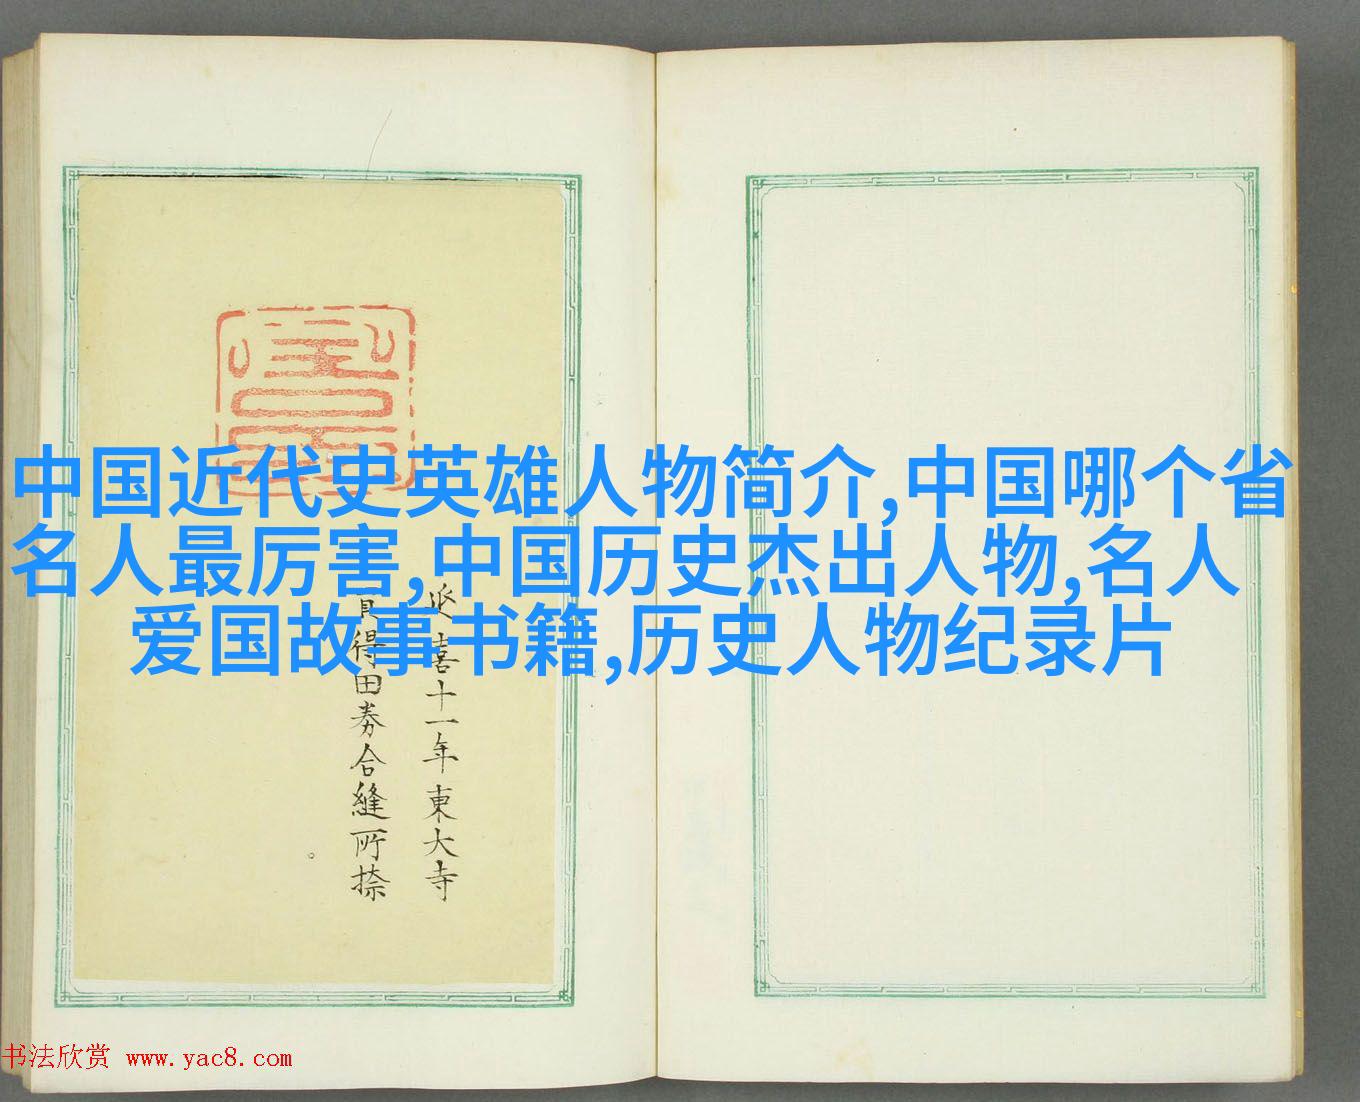 中国近代史英雄人物简介,中国哪个省
名人最厉害,中国历史杰出人物,名人
爱国故事书籍,历史人物纪录片
延喜十一年東大寺
得田券合縫所捺
书法欣赏 www.yac8.com